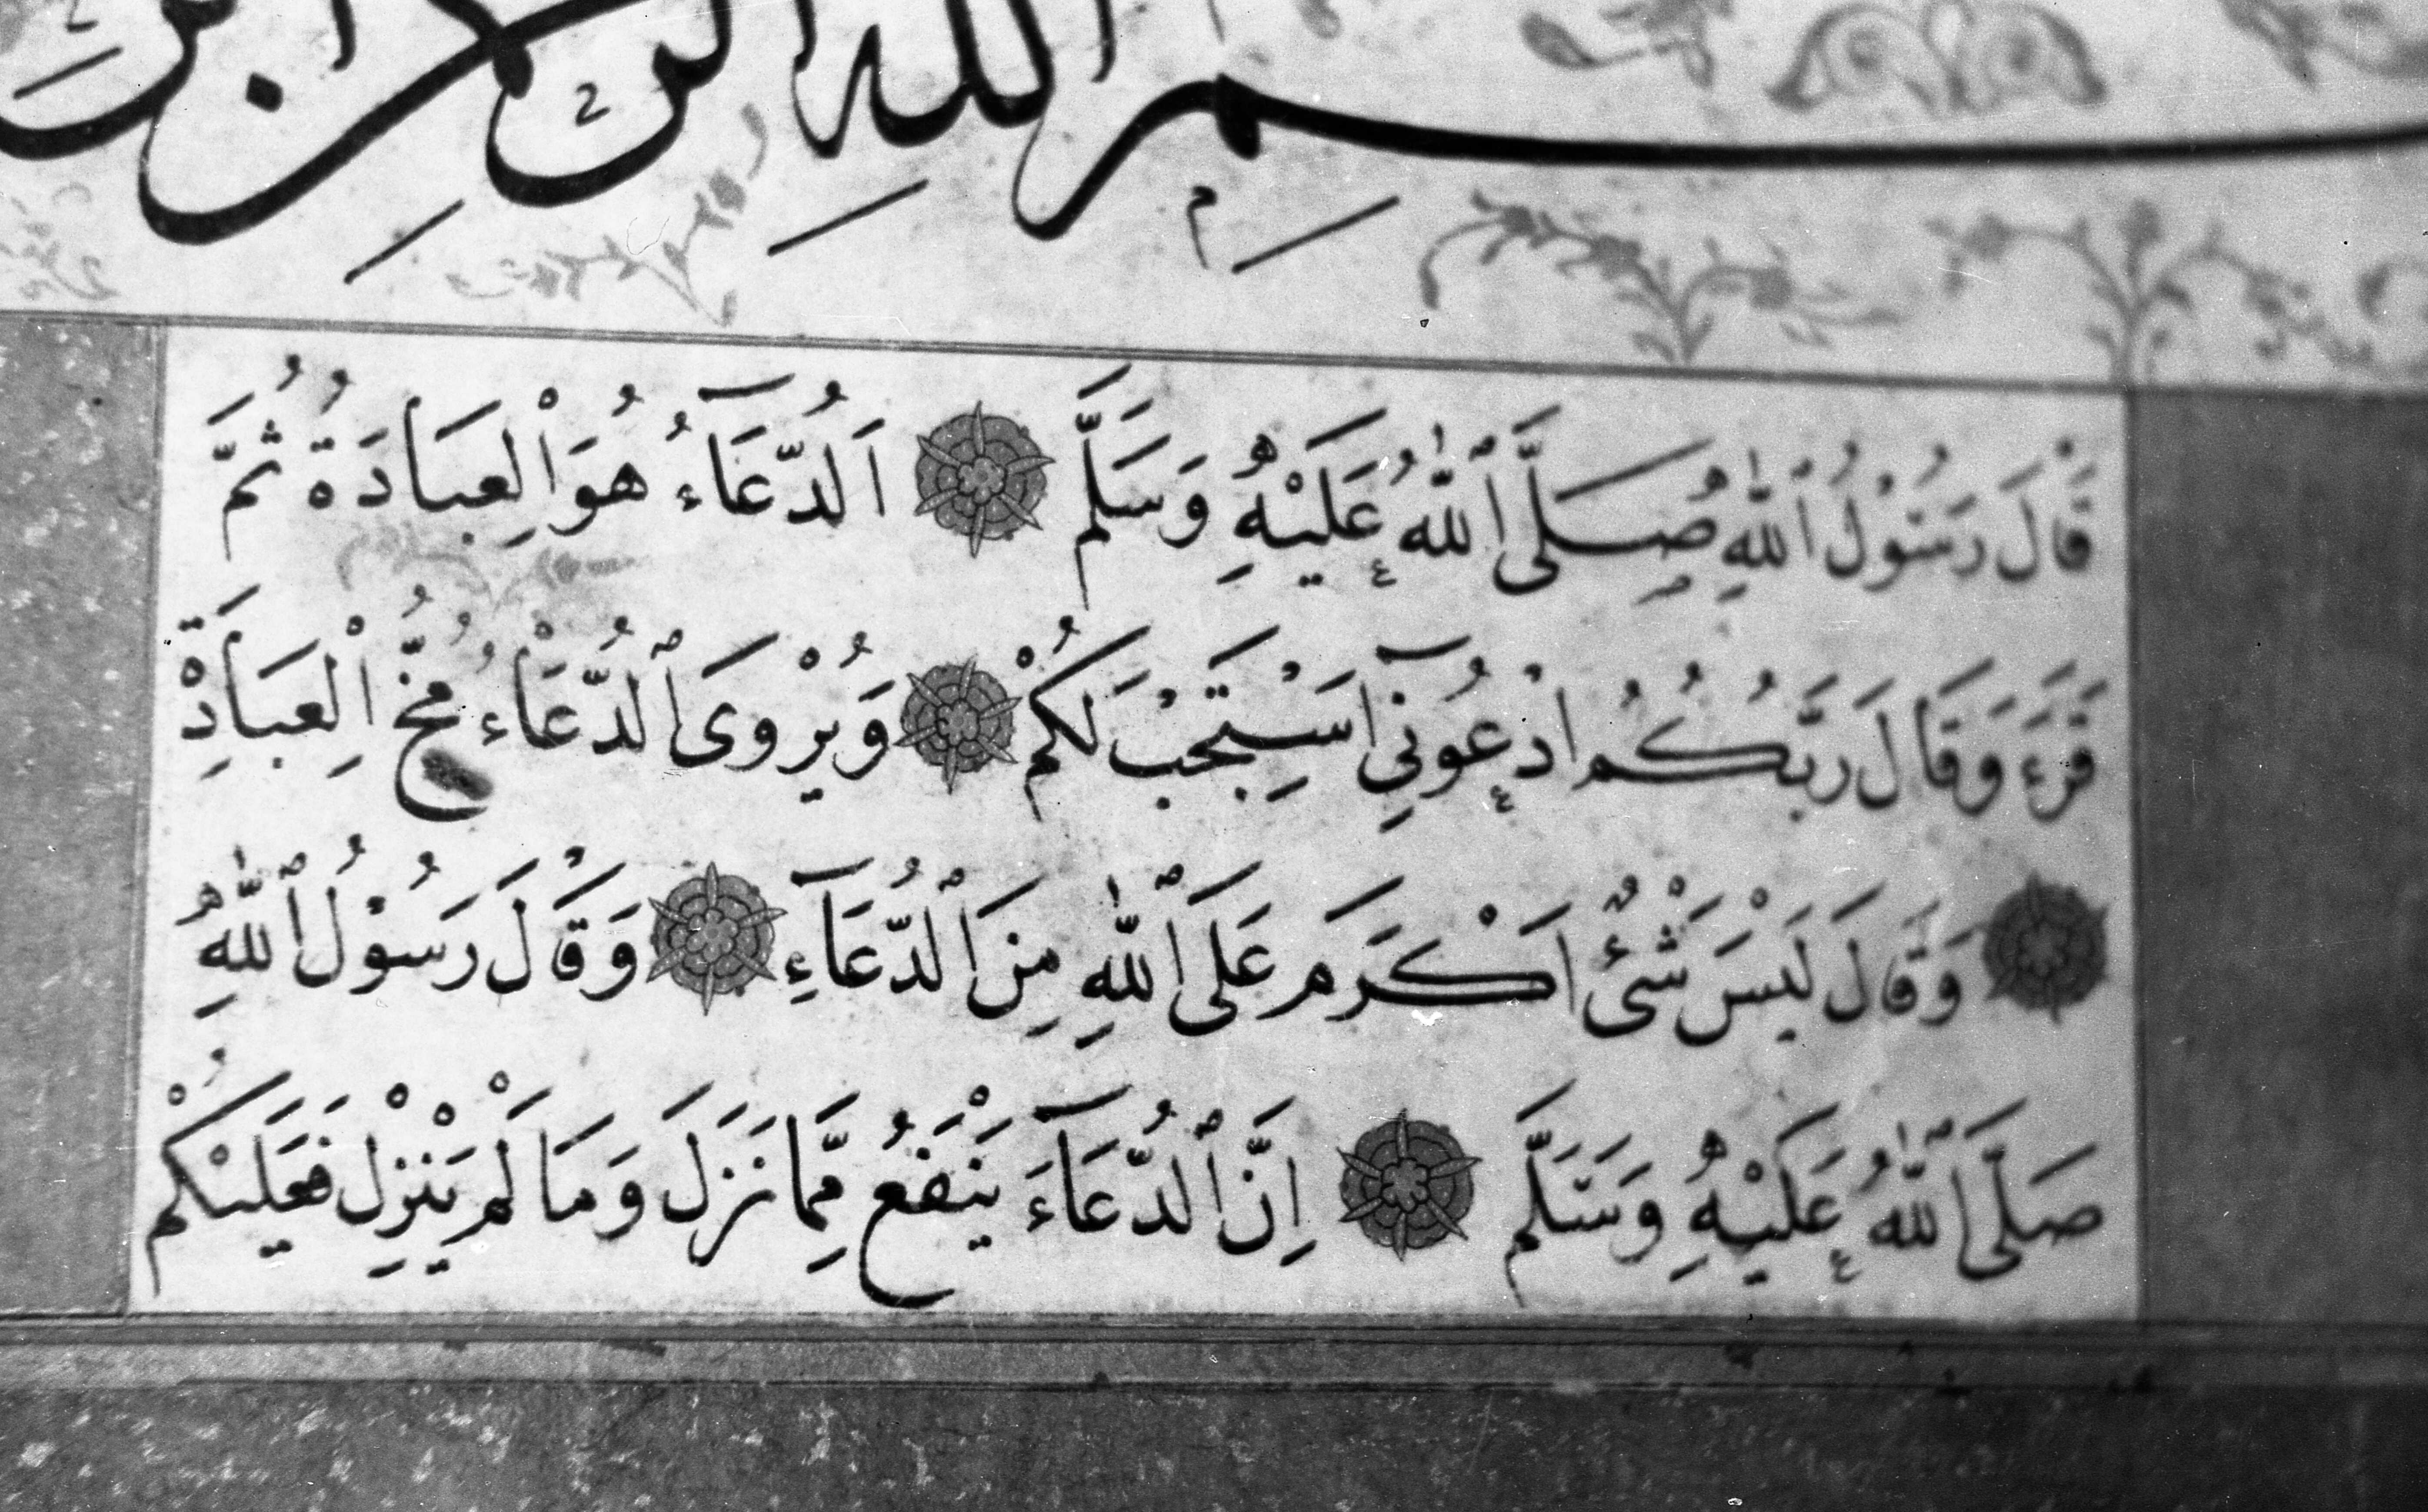 بِسْمِ اللهِ الرَّحْمٰنِ
قَالَ رَسُوْلُ ٱللّٰهِ صَلَّى ٱللّٰهُ عَلَيْهِ وَسَلَّمَ اَلدُّعَآءُ هُوَ الْعِبَادَةُ ثُمَّ
قَرَءَ وَقَالَ رَبُّكُمُ ادْعُونِيٓ اَسْتَجِبْ لَكُمْ وَيُرْوَى ٱلدُّعَاءُ مُخُّ الْعِبَادَةِ
وَقَالَ لَيْسَ شَيْءٌ اَكْرَمَ عَلَى ٱللّٰهِ مِنَ ٱلدُّعَآءِ وَقَالَ رَسُوْلُ ٱللّٰهِ
صَلَّى ٱللّٰهُ عَلَيْهِ وَسَلَّمَ اِنَّ ٱلدُّعَآءَ يَنْفَعُ مِمَّا نَزَلَ وَمَا لَمْ يَنْزِلْ فَعَلَيْكُمْ